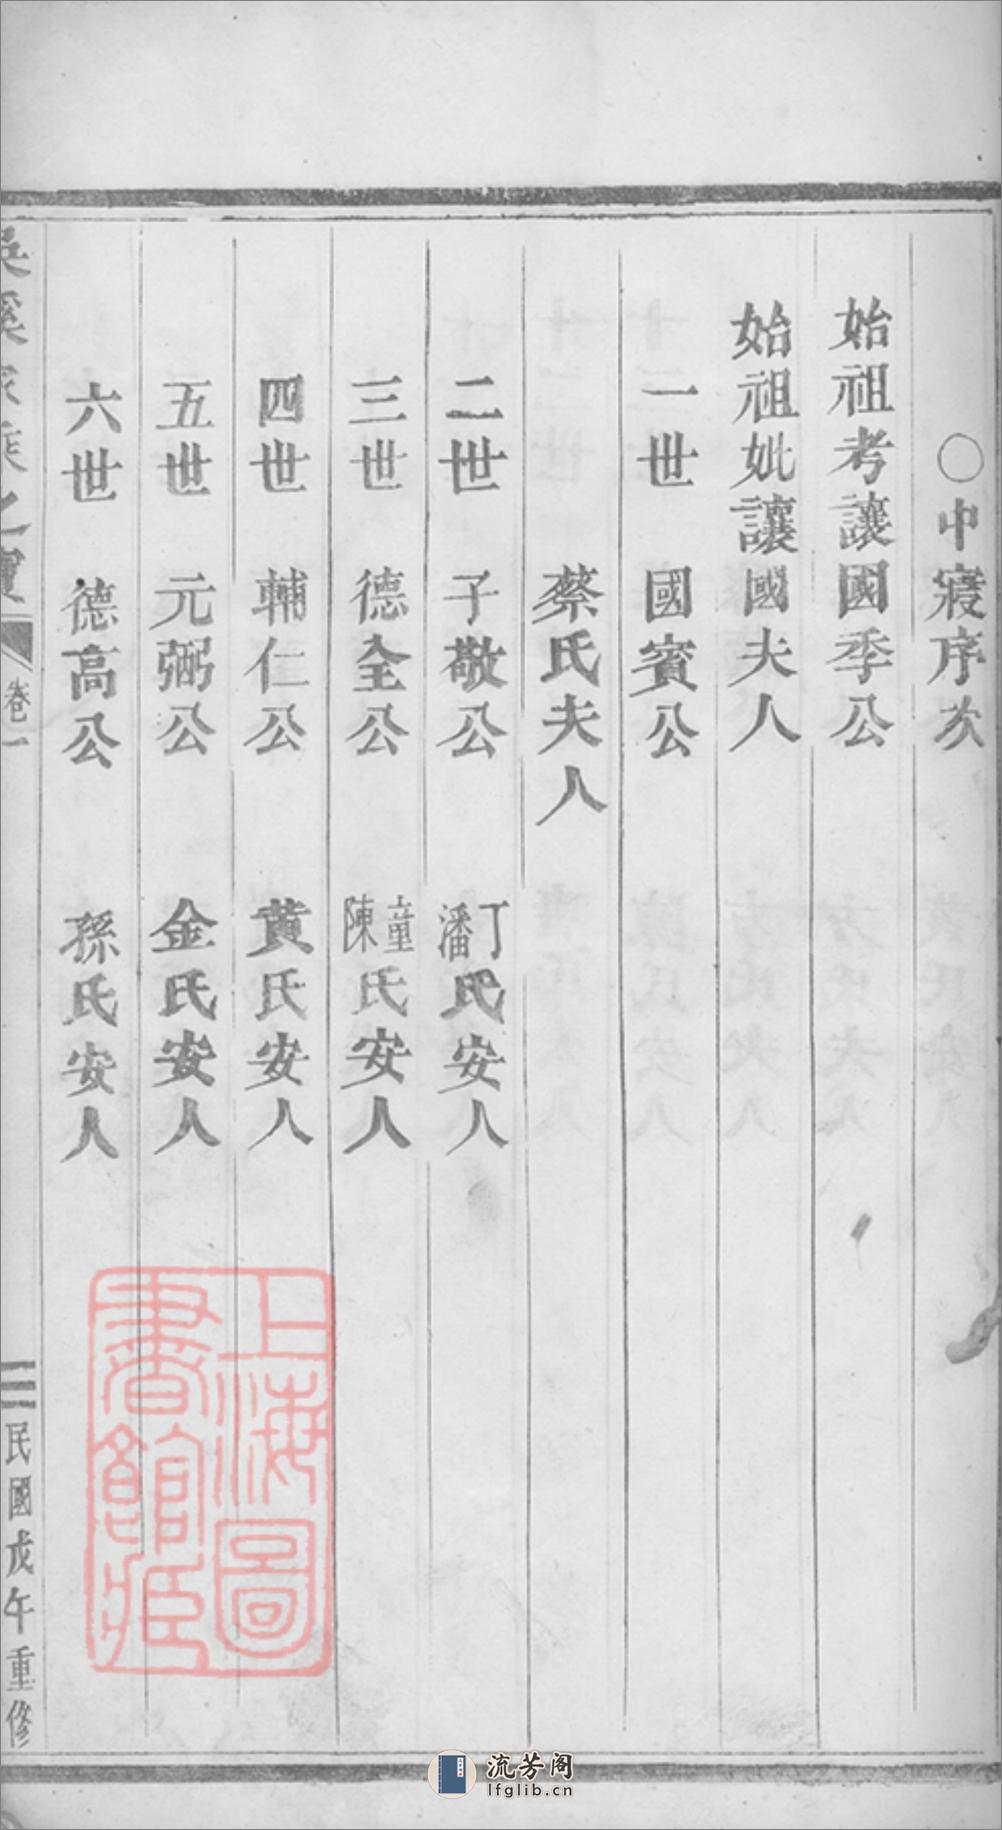 ○中寢序次
始祖考讓國季公
始祖妣讓國夫人
一世 國賓公
蔡氏夫人
二世 子敬公 丁潘氏安人
三世 德全公 童陳氏安人
四世 輔仁公 黄氏安人
五世 元弼公 金氏安人
六世 德高公 孫氏安人
吳溪家乘之寶 卷一 三 民國戊午重修
上海圖
書館藏
流芳阁
lfglib.cn